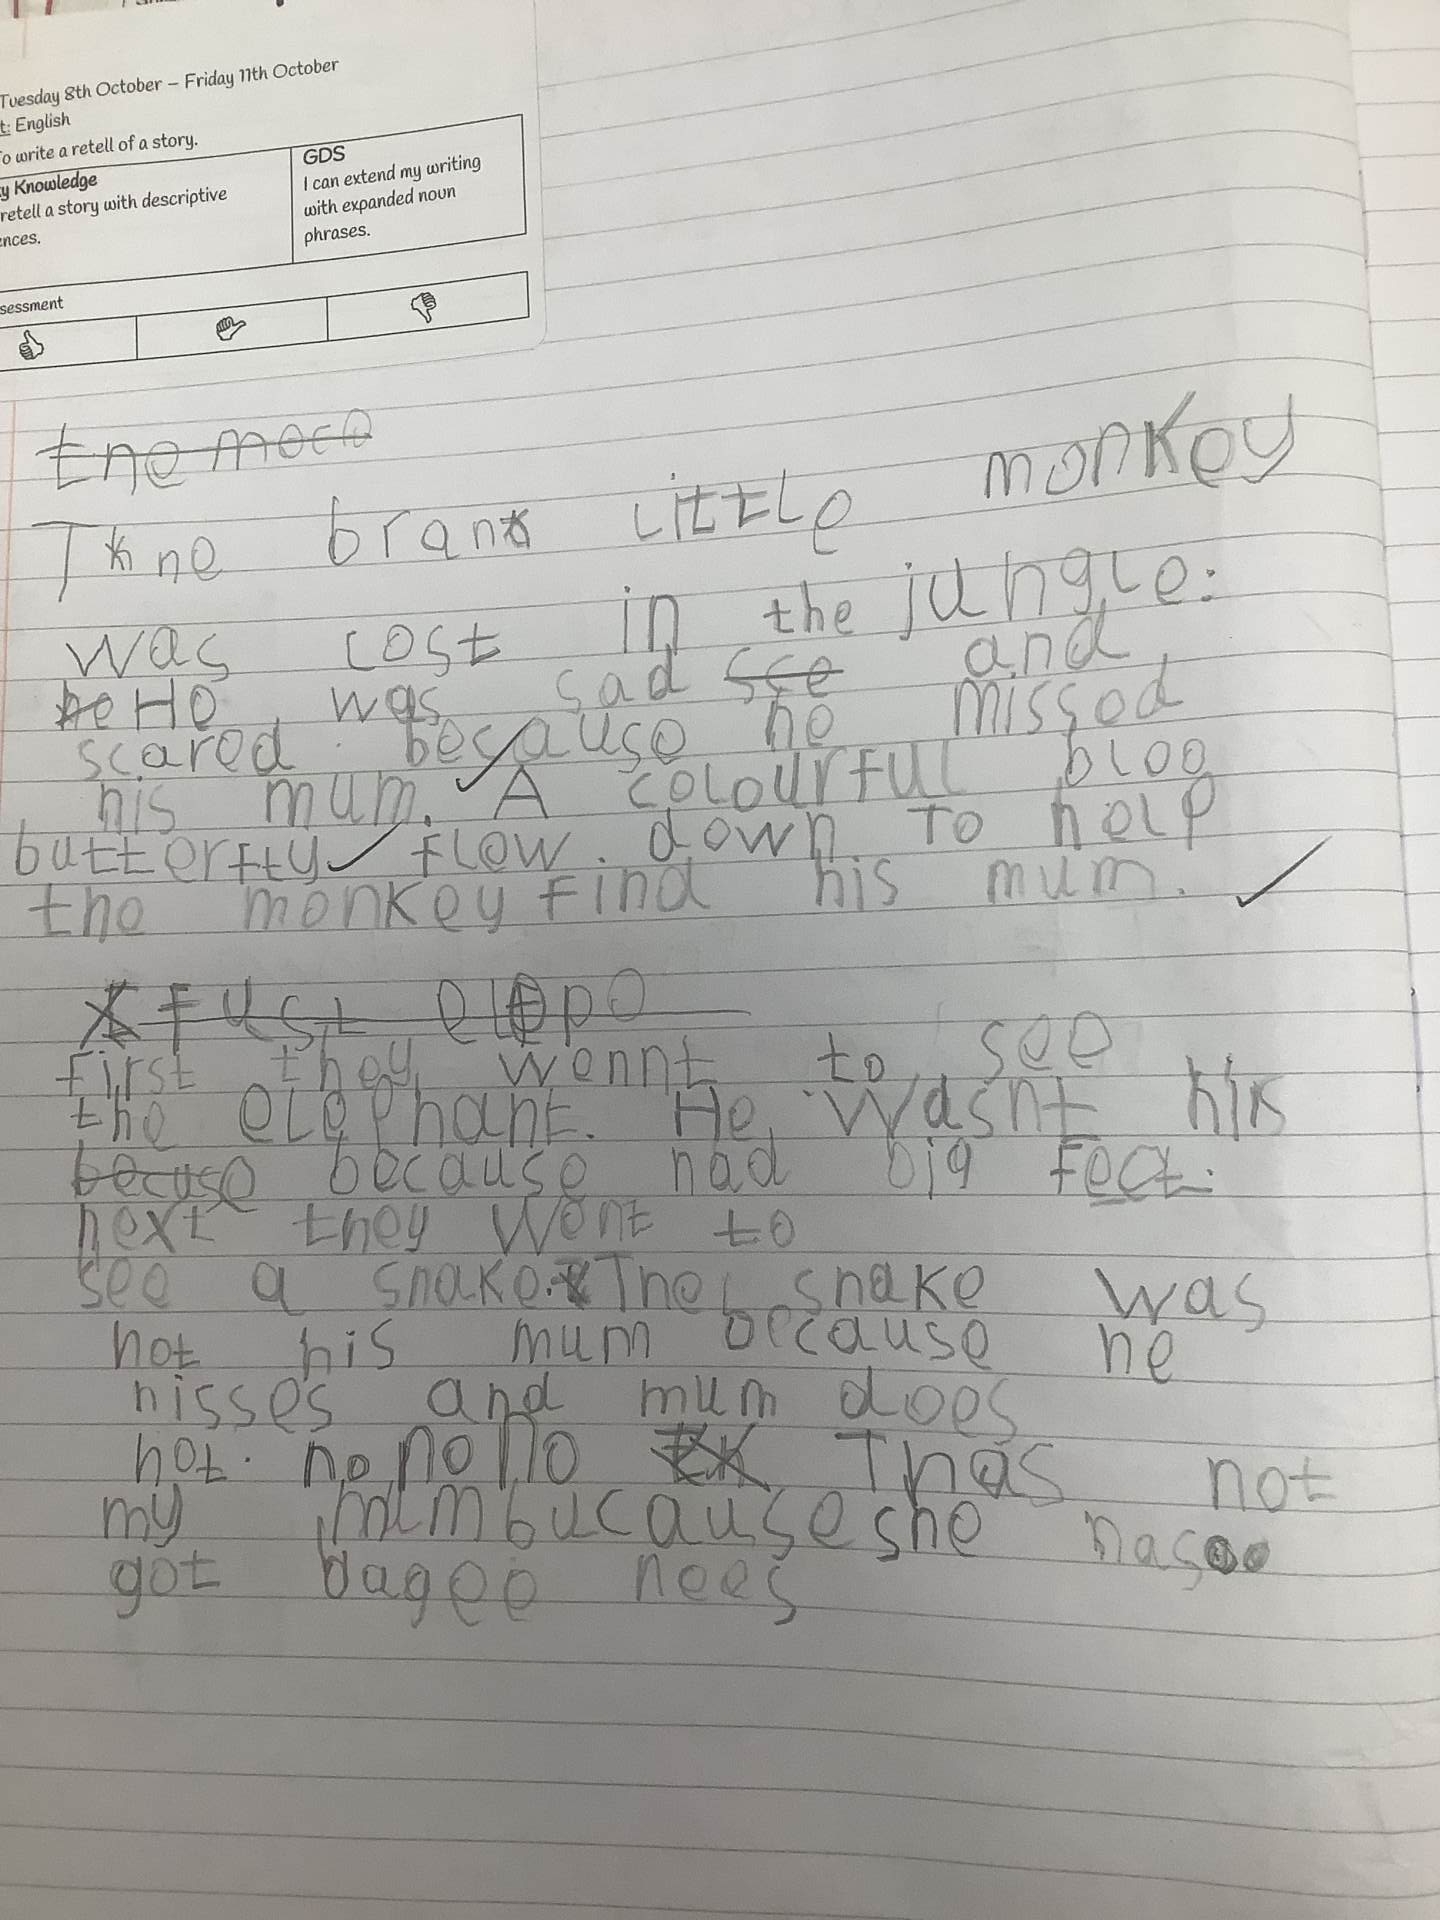 Tuesday 8th October – Friday 11th October
t: English
o write a retell of a story.
y Knowledge
retell a story with descriptive
ences.
GDS
I can extend my writing
with expanded noun
phrases.
sessment
the moco
The bran little monkey
was lost in the jungle.
he He was sad sce and
scared. because he missed
his mum. A colourful bloo
butterfly flow. down To help
the monkey find his mum.
fust elepo
first they wennt to see
the elephant. He wasnt his
becuse because had big feet.
next they went to
see a snake. The snake was
not his mum because he
hisses and mum does
not. no no no Thas not
my mum bucause she has
got bagee nees